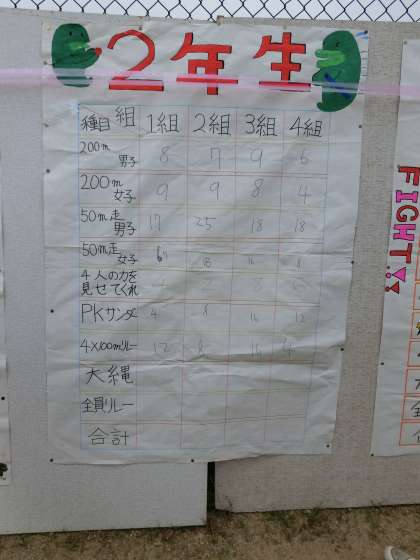 2年生
種目 組 1組 2組 3組 4組
200m男子 8 7 9 6
200m女子 9 9 8 4
50m走男子 17 25 18 18
50m走女子
4人の力を見せてくれ
PKサンダー 4 8 16 12
4×100mリレー 12 8 16 4
大縄
全員リレー
合計
FIGHT!!